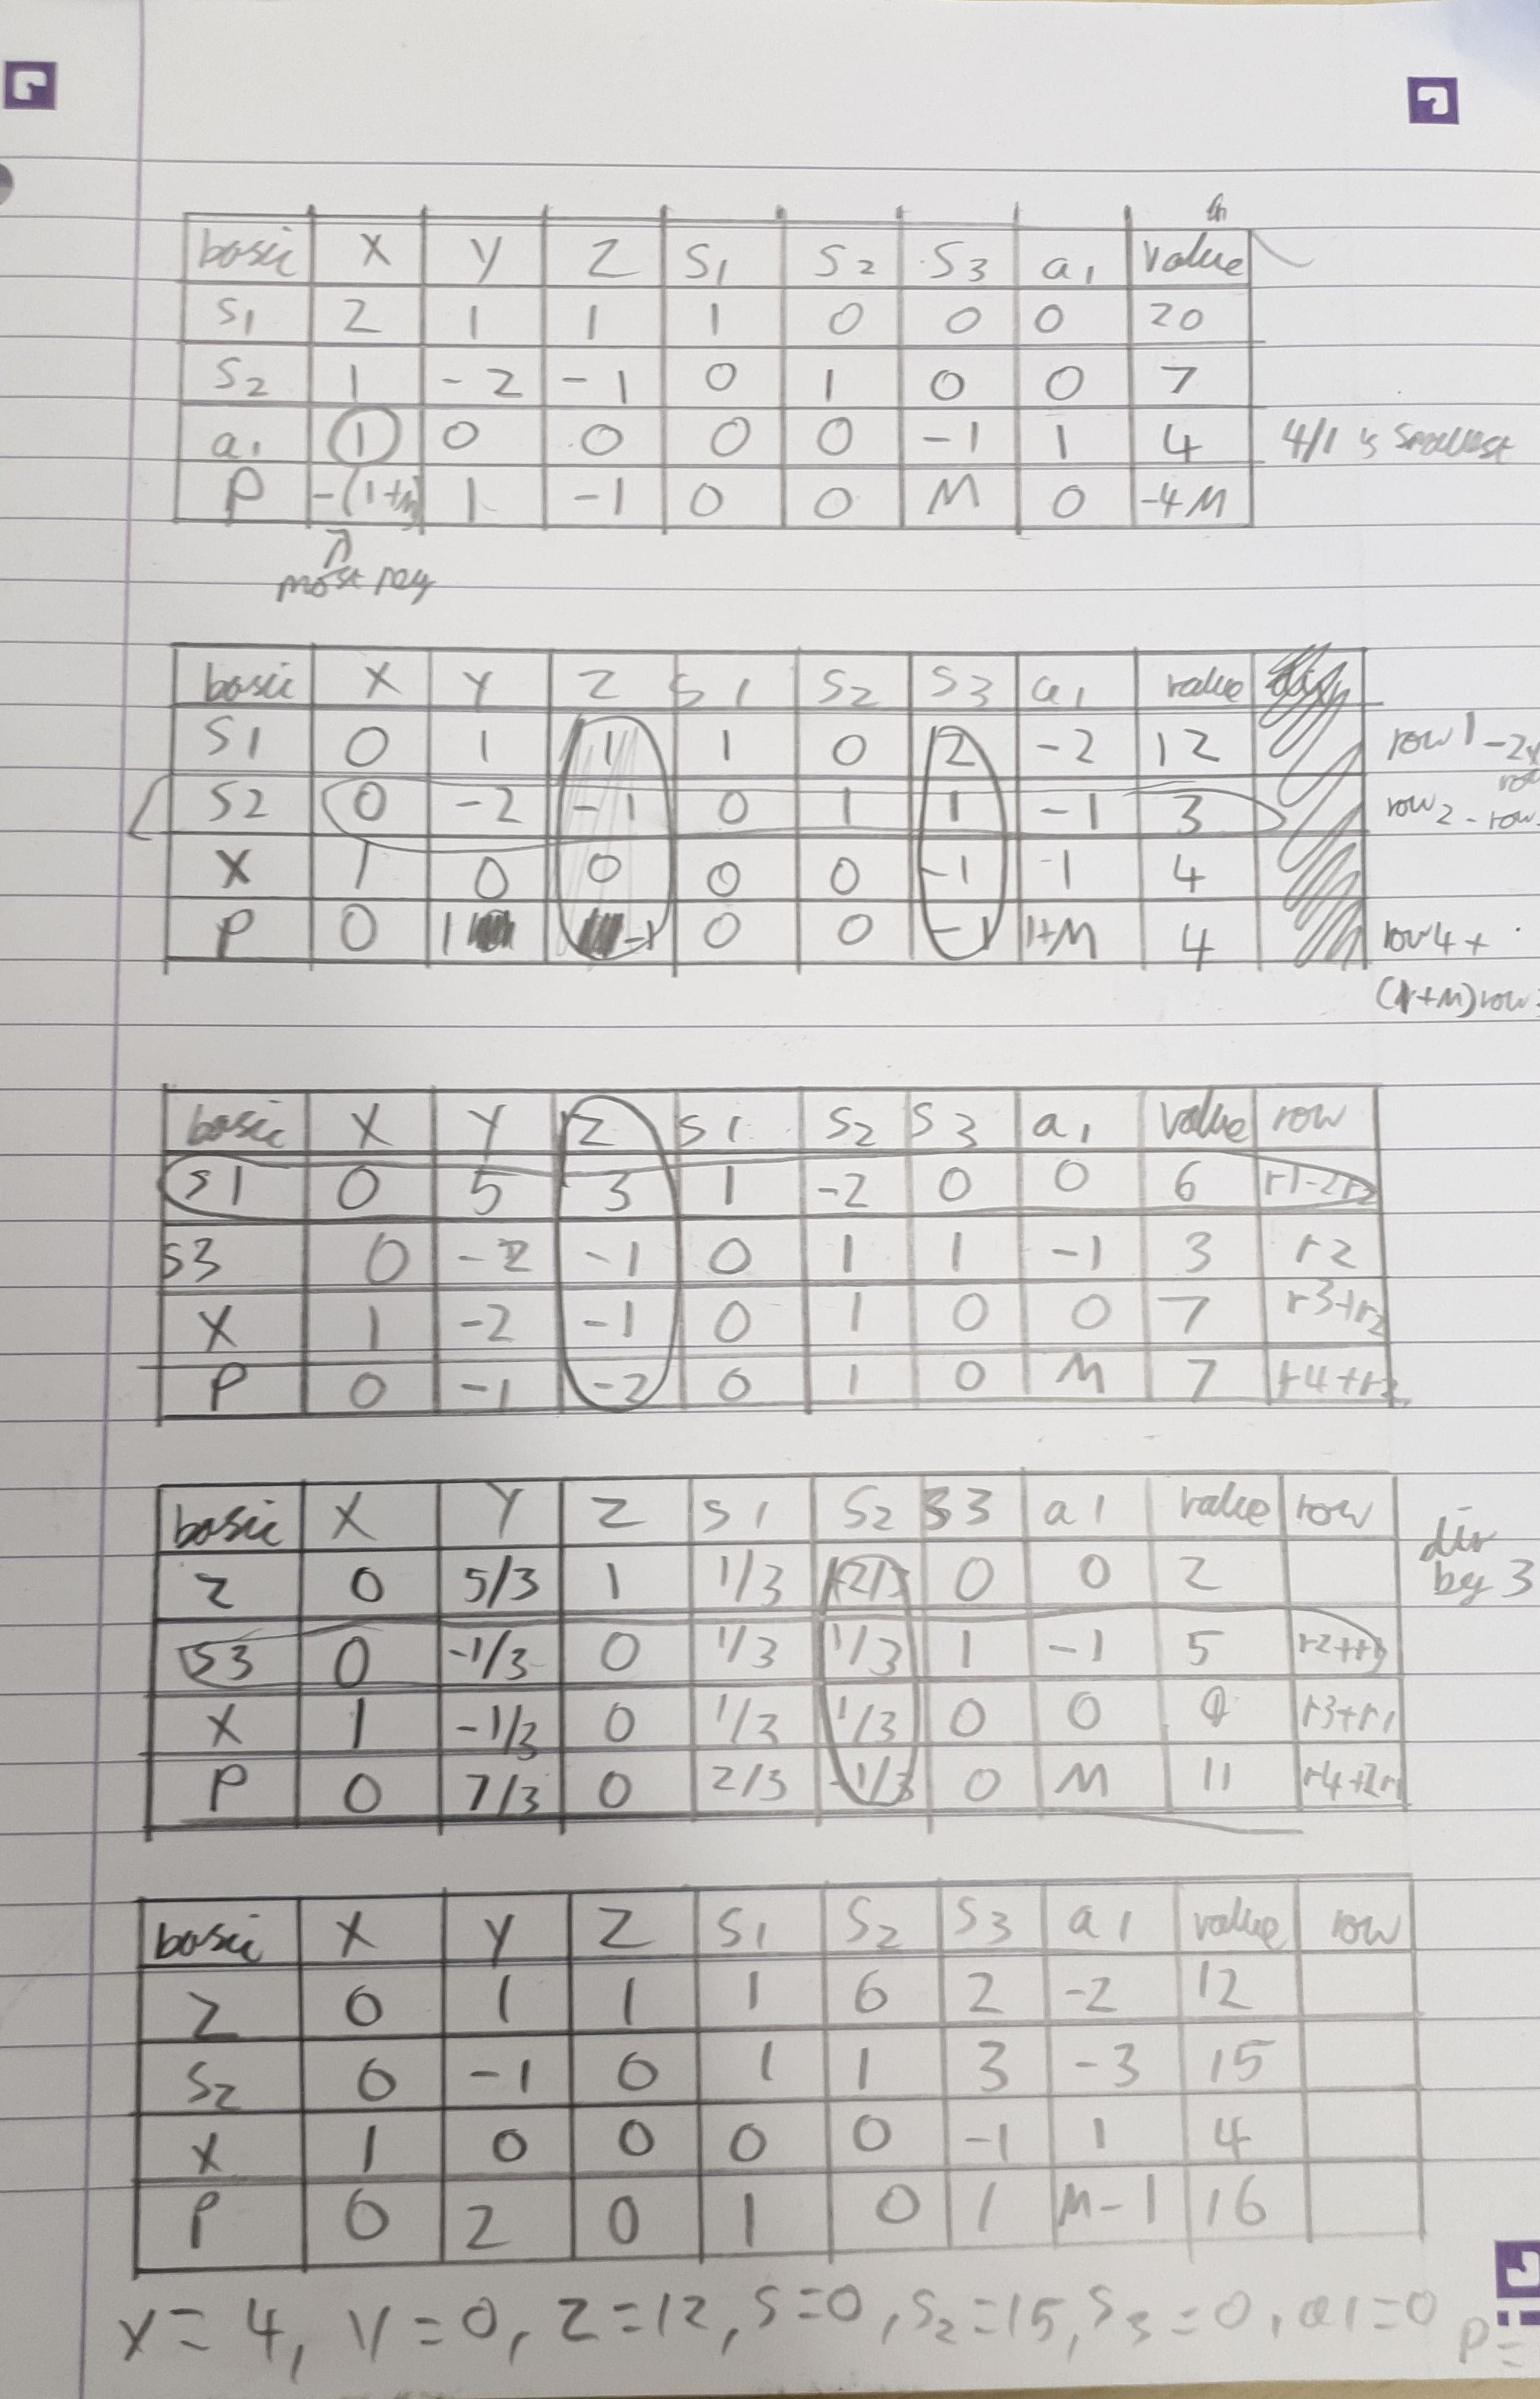 basic X Y Z S1 S2 S3 a1 value
S1 2 1 1 1 0 0 0 20
S2 1 -2 -1 0 1 0 0 7
a1 1 0 0 0 0 -1 1 4 4/1 is smallest
P -(1+M) 1 -1 0 0 M 0 -4M
↑
most neg
basic X Y Z S1 S2 S3 a1 value
S1 0 1 1 1 0 2 -2 12 row1-2x
S2 0 -2 -1 0 1 1 -1 3 row2-row
X 1 0 0 0 0 -1 1 4
P 0 1 -1 0 0 -1 1+M 4 row4+
(1+M)row
basic X Y Z S1 S2 S3 a1 value row
S1 0 5 3 1 -2 0 0 6 r1-2r2
S3 0 -2 -1 0 1 1 -1 3 r2
X 1 -2 -1 0 1 0 0 7 r3+r2
P 0 -1 -2 0 1 0 M 7 r4+r2
basic X Y Z S1 S2 S3 a1 value row div
Z 0 5/3 1 1/3 -2/3 0 0 2 by 3
S3 0 -1/3 0 1/3 1/3 1 -1 5 r2+r1
X 1 -1/3 0 1/3 1/3 0 0 9 r3+r1
P 0 7/3 0 2/3 -1/3 0 M 11 r4+2r1
basic X Y Z S1 S2 S3 a1 value row
Z 0 1 1 1 0 2 -2 12
S2 0 -1 0 1 1 3 -3 15
X 1 0 0 0 0 -1 1 4
P 0 2 0 1 0 1 M-1 16
x=4, y=0, z=12, s=0, s2=15, s3=0, a1=0 P=